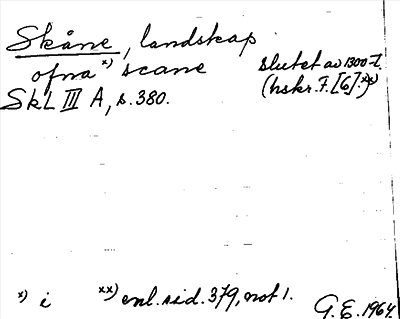 Skåne, landskap
ofna x) scane slutet av 1300-t.
SkL III A, s. 380. (hskr. F. [6].xx)
x) i xx) enl. sid. 379, not 1. G.E. 1964.